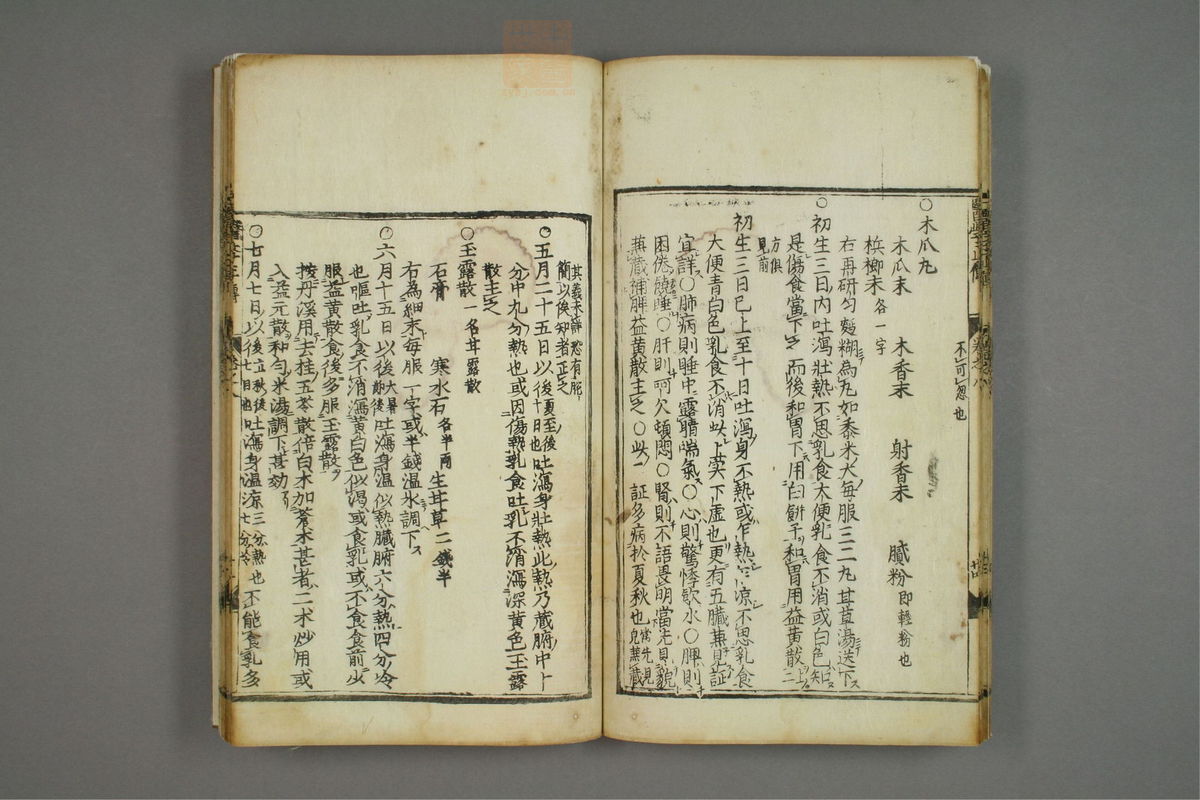 不可忽也
○木瓜丸
木瓜末 木香末 射香末 膩粉即輕粉也
梹榔末各一字
右再研匀麵糊為丸如黍米大每服三二九甘草湯送下
○初生三日內吐瀉壯熱不思乳食大便乳食不消或白色知
是傷食當下之而後和胃下用白餅子和胃用益黄散上二
方俱見前
初生三日已上至十日吐瀉身不熱或乍熱乍凉不思乳食
大便青白色乳食不消此上實下虛也更有五臓兼見証
宜詳○肺病則睡中露睛喘氣○心則驚悸飲水○脾則
困倦饒睡○肝則呵欠頓悶○腎則不語畏明當先見
兼藏補脾益黄散主之○此証多病於夏秋也
其義未詳恐有脱
簡以俟知者正之
○五月二十五日以後夏至後十日也吐瀉身壯熱此熱乃藏腑中十
分中九分熱也或因傷熱乳食吐乳不消瀉深黄色玉露
散主之
○玉露散 一名甘露散
石膏 寒水石各半両 生甘草二錢半
右為細末每服一字或半錢温水調下
○六月十五日以後大暑前後吐瀉身温似熱臓腑六分熱四分冷
也嘔吐乳食不消瀉黄白色似渇或食乳或不食食前少
服益黄散食後多服玉露散
按丹溪用去桂五苓散倍白朮加蒼朮甚者二朮炒用或
入益元散和匀米湯調下甚効
○七月七日以後立秋後七日也吐瀉身温凉三分熱七分冷也不能食乳多